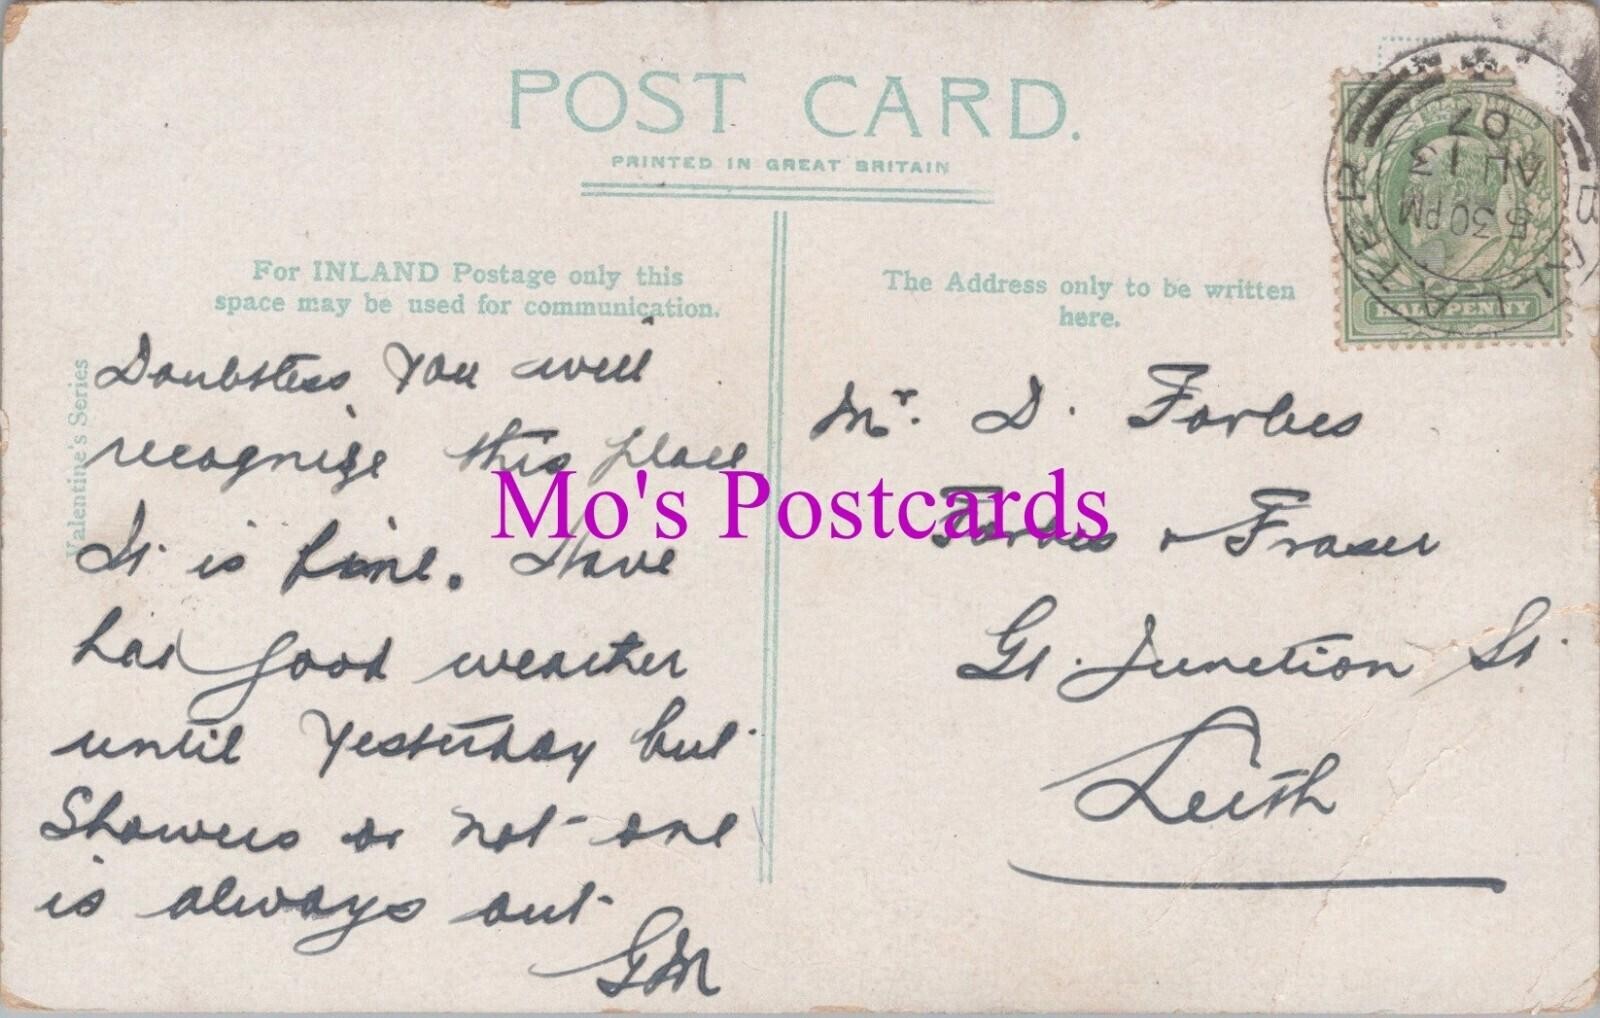 POST CARD.
PRINTED IN GREAT BRITAIN
For INLAND Postage only this
space may be used for communication.
The Address only to be written
here.
Valentine's Series
BALLATER
6 30 PM
AU 13
07
HALFPENNY
Doubtless you will
recognise this place
It is fine. Have
had good weather
until yesterday but
Showers or not one
is always out
GM
Mr. D. Forbes
Forbes & Fraser
Gt. Junction St.
Leith
Mo's Postcards